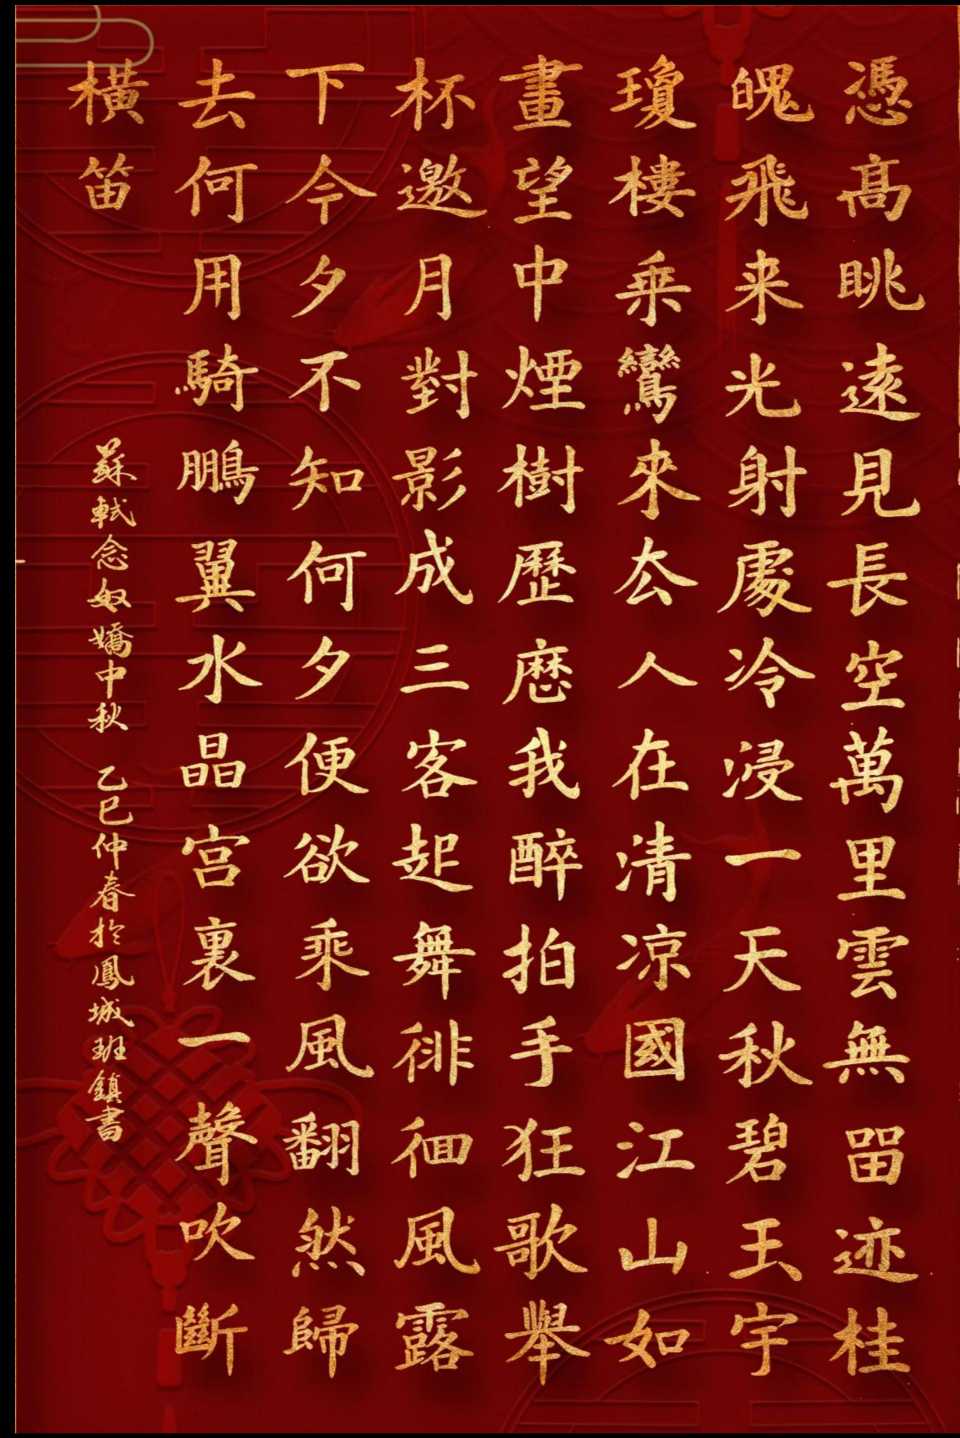 憑高眺遠見長空萬里雲無畱迹桂
魄飛来光射處冷浸一天秋碧玉宇
瓊樓乗鸞來厺人在清涼國江山如
畫望中煙樹歷歴我醉拍手狂歌舉
杯邀月對影成三客起舞徘徊風露
下今夕不知何夕便欲乘風翻然歸
去何用騎鵬翼水晶宫裏一聲吹斷
橫笛
蘇軾念奴嬌中秋 乙巳仲春於鳳城班鎮書